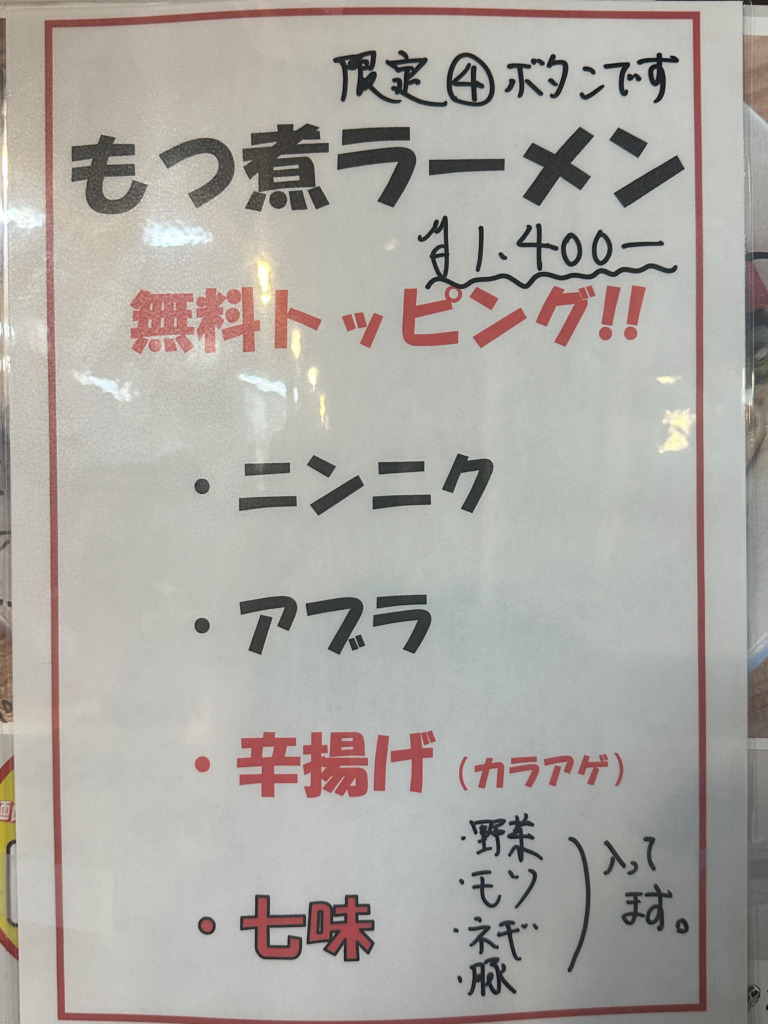 限定④ボタンです
もつ煮ラーメン
¥1.400ー
無料トッピング!!
・ニンニク
・アブラ
・辛揚げ（カラアゲ）
・七味
・野菜
・モツ
・ネギ
・豚
入って
ます。